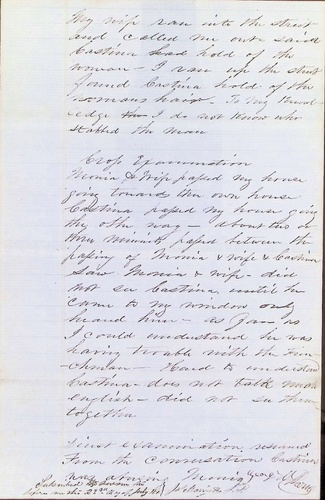 My wife ran into the street
and called me out - said
Castina had hold of the
woman - I ran up the street
found Castina hold of the
womans hair - To my knowl-
edge I do not know who
stabbed the man
Cross Examination
Monia & Wife passed my house
going towards their own house
Castina passed my house going
the other way - about five or
minutes passed between the
passing of Monia & wife & Castina
Saw Monia & wife - did
not see Castina, until he
came to my window only
heard him - as far as
I could understand he was
having trouble with the Fren-
chman - Hard to understand
Castina - does not talk much
english - did not see them
together
Direct examination resumed
From the conversation Castina
was Monia
Subscribed & sworn to
before me this 22nd day of July